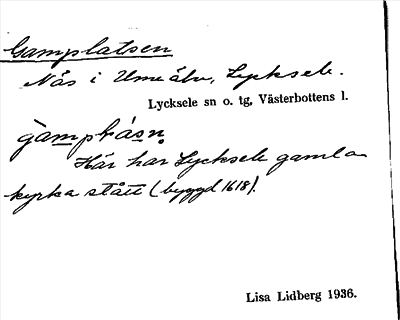 Gamplatsen
Näs i Umeälv, Lycksele.
Lycksele sn o. tg, Västerbottens l.
Här har Lycksele gamla
kyrka stått (byggd 1618).
Lisa Lidberg 1936.